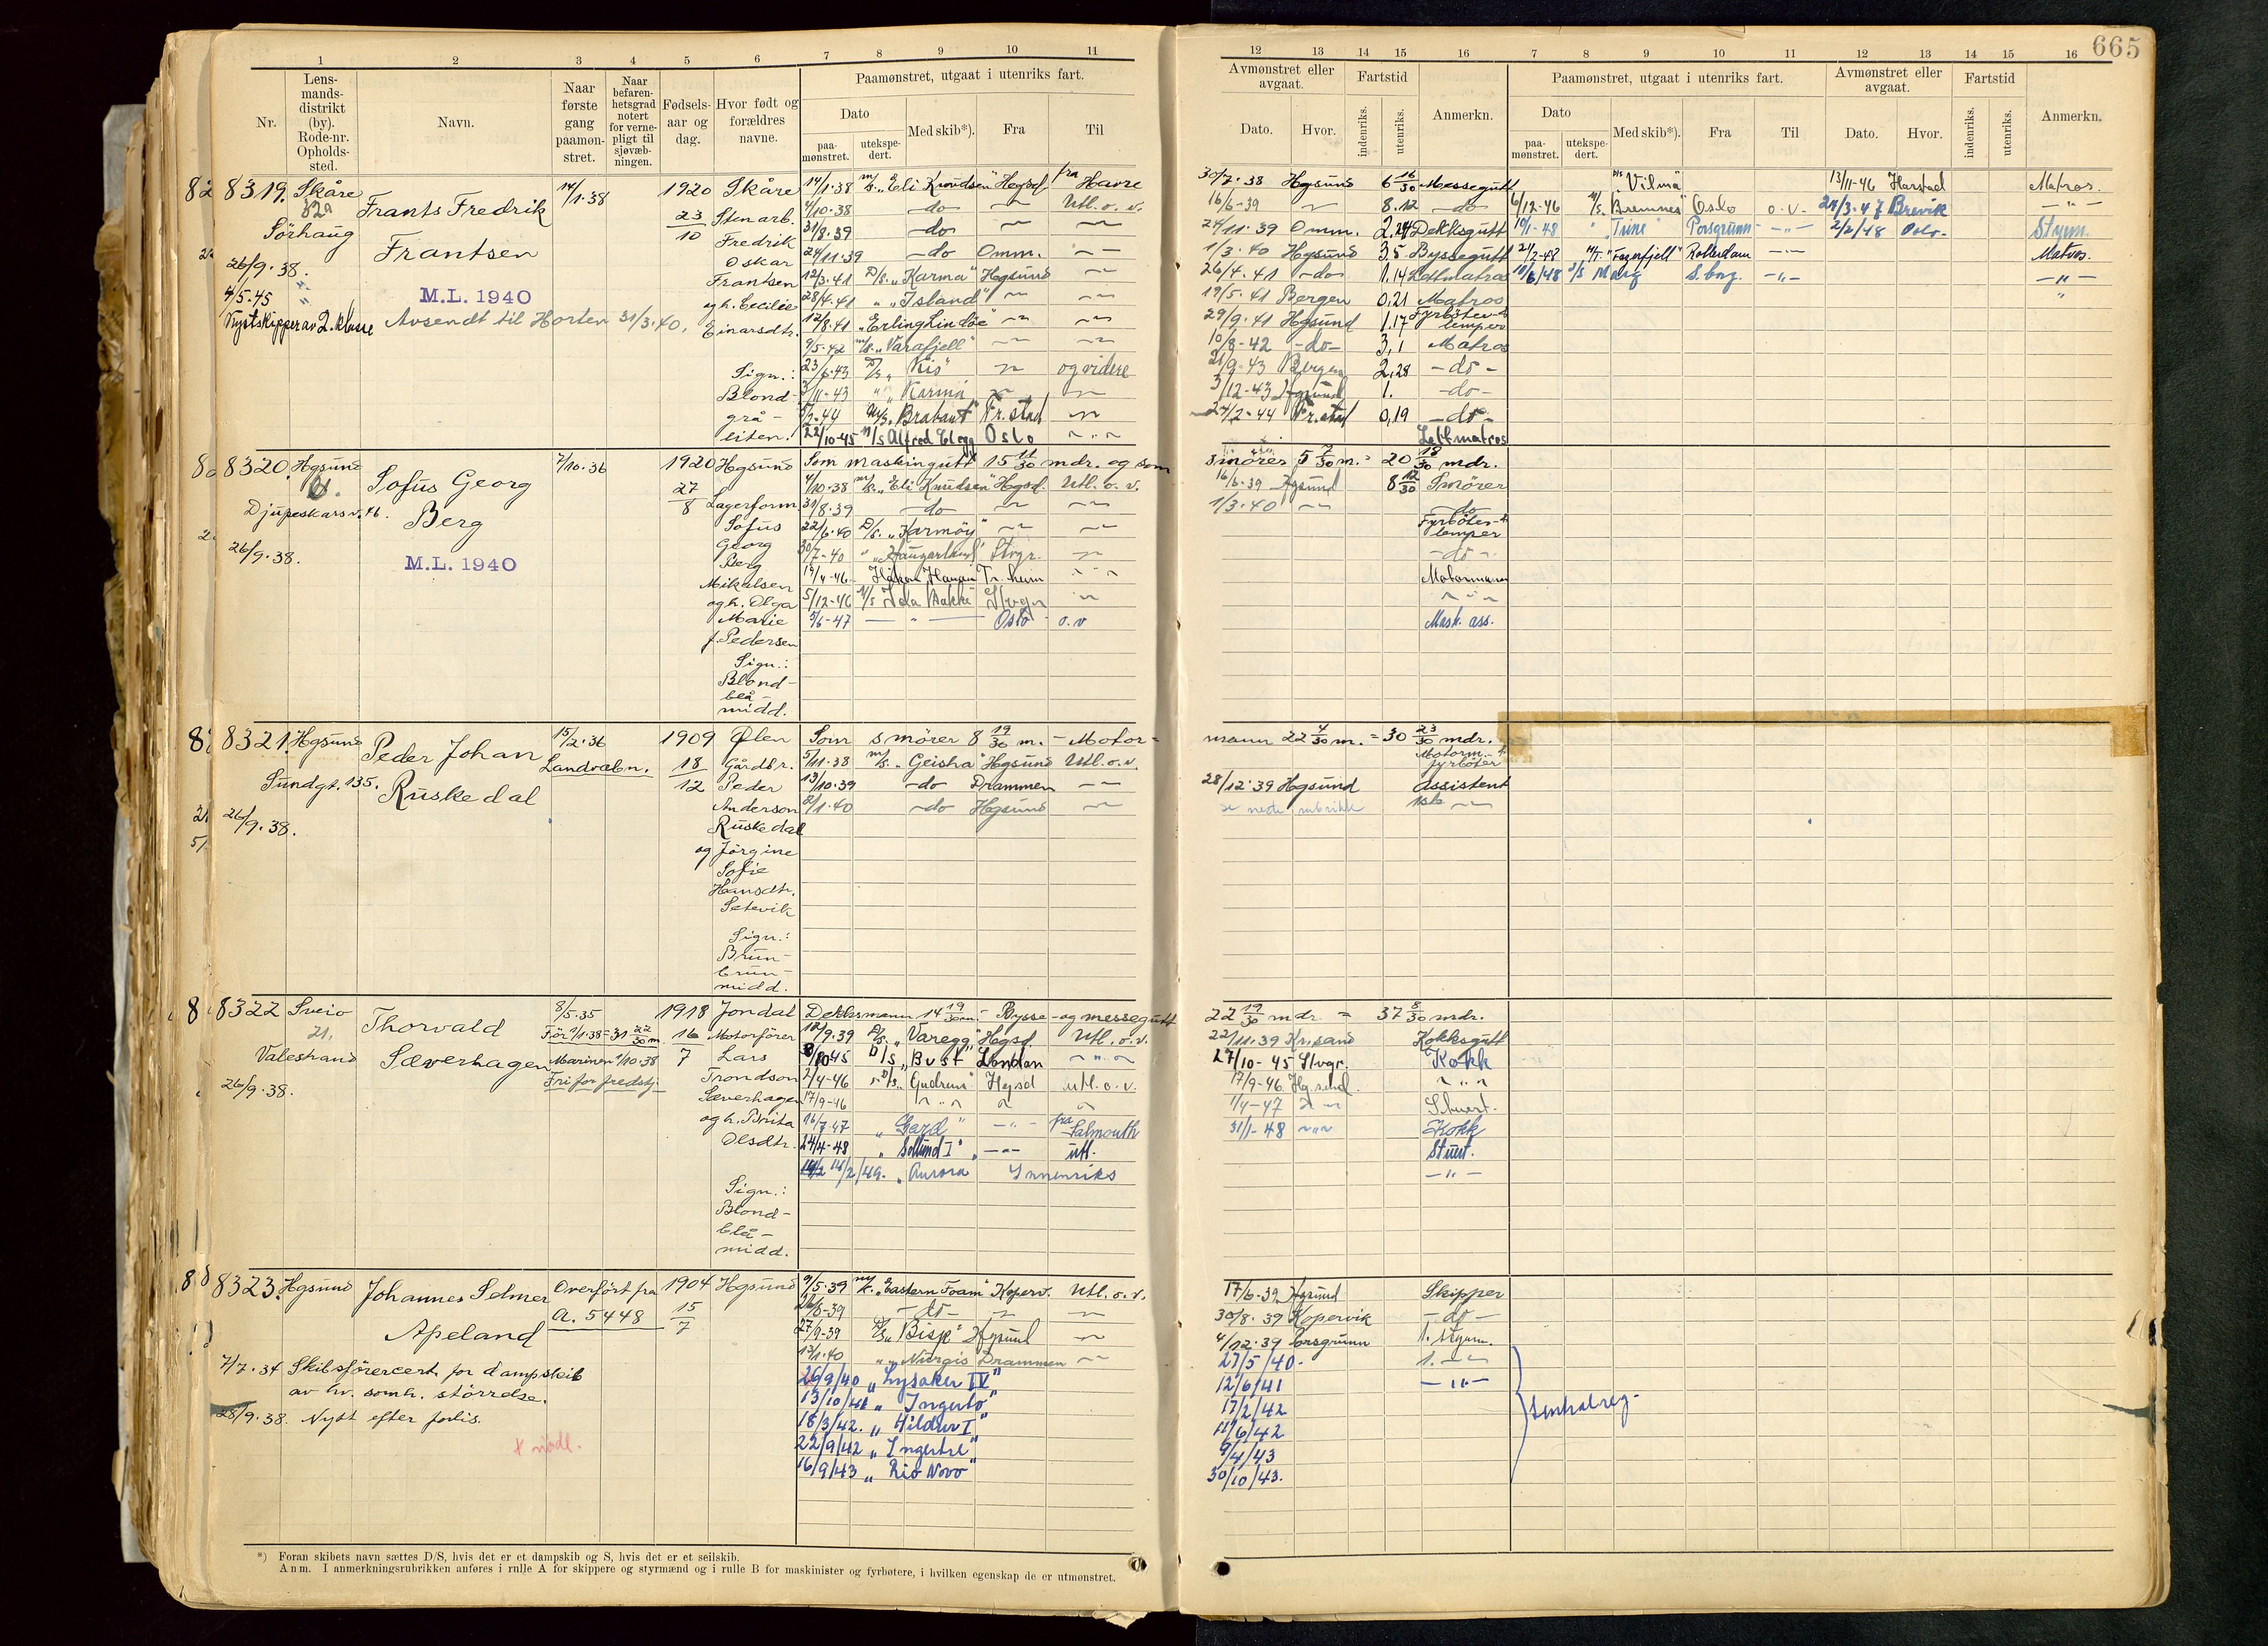 665
1 2 3 4 5 6 7 8 9 10 11
Nr.
Lens-
mands-
distrikt
(by).
Rode-nr.
Opholds-
sted.
Navn.
Naar
første
gang
paamøn-
stret.
Naar
befaren-
hetsgrad
notert
for verne-
pligt til
sjøvæb-
ningen.
Fødsels-
aar og
dag.
Hvor født og
forældres
navne.
Paamønstret, utgaat i utenriks fart.
Dato
paa-
mønstret.
utekspe-
dert.
Med skib*).
Fra
Til
12 13 14 15 16 7 8 9 10 11 12 13 14 15 16
Avmønstret eller
avgaat.
Dato.
Hvor.
Fartstid
indenriks.
utenriks.
Anmerkn.
Paamønstret, utgaat i utenriks fart.
Dato
paa-
mønstret.
utekspe-
dert.
Med skib*).
Fra
Til
Avmønstret eller
avgaat.
Dato.
Hvor.
Fartstid
indenriks.
utenriks.
Anmerkn.
8319. Skåre
32a
Sörhaug
26/9.38.
4/5.45
Kystskipper av 2. klasse
Frants Fredrik
Frantsen
M.L. 1940
Avsendt til Horten 31/3.40.
14/1.38
1920
23/10
Skåre
Stenarb.
Fredrik
Oskar
Frantsen
og h. Cecilie
Einarsdtr.
Sign.:
Blond-
grå-
liten.
14/1.38 m/s. „Eli Knudsen" Hgsd. fra Havre
4/10.38 -do- Utl. o. v.
31/8.39 -do-
24/11.39 -do Omm.
12/3.41 D/s. „Karma" Hgsund
28/4.41 „ „Island"
12/8.41 „Erling Lindöe"
9/5.42 m/s. „Varafjell"
23/6.43 D/s „Kis" og videre
3/11-43 „ Karma
M/s. Brabant Fr.stad
22/10-45 M/s Alfred Clegg Oslo
30/7.38 Hgsund 6 16/30 Messegutt
16/6-39 8.12 -do-
24/11.39 Omm. 2,24 Dekksgutt
1/3.40 Hgsund 3,5 Byssegutt
26/4.41 -do- 1,14 Lettmatros
19/5.41 Bergen 0,21 Matros
29/9.41 Hgsund 1,17 Fyrböter-
lemper
10/8-42 -do- 3,1 Matros
21/9-43 Bergen 2,28 -do-
3/12-43 Hgsund 1. -do-
24/2-44 Fr.stad 0,19 -do-
Lettmatros
„Vilma" 13/11-46 Harstad Matros.
6/12-46 M/s. Bremnes" Oslo o.v. 24/3.47 Brevik -"-
19/1-48 " Trine" Porsgrunn -"- 2/2/48 Oslo- Styrm.
21/2-48 M/T. "Fagerfjell" Rotterdam -"- Matros.
10/6/48 S.borg. -"- -"-
8320. Hgsund
Djupeskarsv. 46.
26/9.38.
Sofus Georg
Berg
M.L. 1940
7/10.36
1920
27/8
Hgsund
Lagerform
Sofus
Georg
Berg
Mikalsen
og h. Olga
Marie
f. Pedersen
Sign.:
Blond-
blå-
midd.
Som maskingutt 15 11/30 mdr. og som
smörer 5 7/30 m. = 20 18/30 mdr.
4/10.38 m/s. „Eli Knudsen" Hgsd. Utl. o. v.
31/8.39 -do-
22/6.40 D/s. „Karmöy"
30/7-40 " „Haugarland" Stvgr.
19/4-46 Håkon Hauan Tr.heim
5/12-46 M/s Ida Bakke Stvgr
5/6-47 Oslo o.v
16/6-39 Hgsund 8 12/30 Smörer
1/3.40 -do-
Fyrböter-
lemper
-do-
Motormann
Mask. ass.
8321. Hgsund
Sundgt. 135.
26/9.38.
Peder Johan
Ruskedal
15/2.36
Landvæbn.
1909
18/12
Ølen
Gårdbr.
Peder
Anderson
Ruskedal
og Jörgine
Sofie
Hansdtr.
Setevik
Sign.:
Brun-
brun-
midd.
Som smörer 8 19/30 m. - Motor-
mann 22 4/30 m. = 30 23/30 mdr.
5/11.38 m/s. „Geisha" Hgsund Utl. o. v.
13/10.39 -do Drammen
-do Hgsund
Motorm.-
fyrböter
28/12.39 Hgsund assistent
se neste rubrikk
8322 Sveio
21.
Valestrand
26/9.38.
Thorvald
Sæverhagen
8/5.35
För 1/1.38 = 31 22/30 m
Marinen 1/10.38
Fri for fredstj.
1918
16/7
Jondal
Motorförer
Lars
Trondson
Sæverhagen
og h. Brita
Olsdtr.
Sign.:
Blond-
blå-
midd.
Dekksmann 14 19/30 m. - Bysse- og messegutt
22 19/30 mdr. = 37 8/30 mdr.
12/9.39 D/s. „Varegg" Hgsd Utl. o. v.
D/s „Bust" London
2/4-46 „Gudrun" Hgsd utl. o. v.
17/9-46
16/7.47 „Gard" fra Falmouth
24/4-48 „Sollund I" utl.
14/2/49. „Aurora Innenriks
22/11.39 Kr.sand Kokksgutt
27/10-45 Stvgr. Kokk
17/9-46. Hg.sund.
1/4-47 Stuert.
31/1-48 Kokk
Stuert.
-"-
8323. Hgsund
Johannes Selmer
Apeland
7/7.34 Skibsförercert. for dampskib
av hv. somh. störrelse.
28/9.38. Nytt efter forlis.
Overfört fra
A. 5448
1904
15/7
Hgsund
9/5.39 m/k. „Eastern Foam" Koperv. Utl. o. v.
26/8-39 -do-
27/9-39 D/s „Bisp" Hgsund
13/1.40 " „Nurgis Drammen
26/9/40 „Lysaker IV"
13/10/41 „Ingerto"
18/3/42. „Hildur I"
22/9/42 „Ingertre"
16/9/43 „Rio Novo"
17/6-39 Hgsund Skipper
30/8.39 Kopervik -do-
4/12.39 Porsgrunn 1. styrm.
27/5/40- 1. -"-
12/6/41 -"-
17/2/42
11/6/42
9/4/43
30/10/43.
Sentralreg.
*) Foran skibets navn sættes D/S, hvis det er et dampskib og S, hvis det er et seilskib.
Anm. I anmerkningsrubrikken anføres i rulle A for skippere og styrmænd og i rulle B for maskinister og fyrbøtere, i hvilken egenskap de er utmønstret.